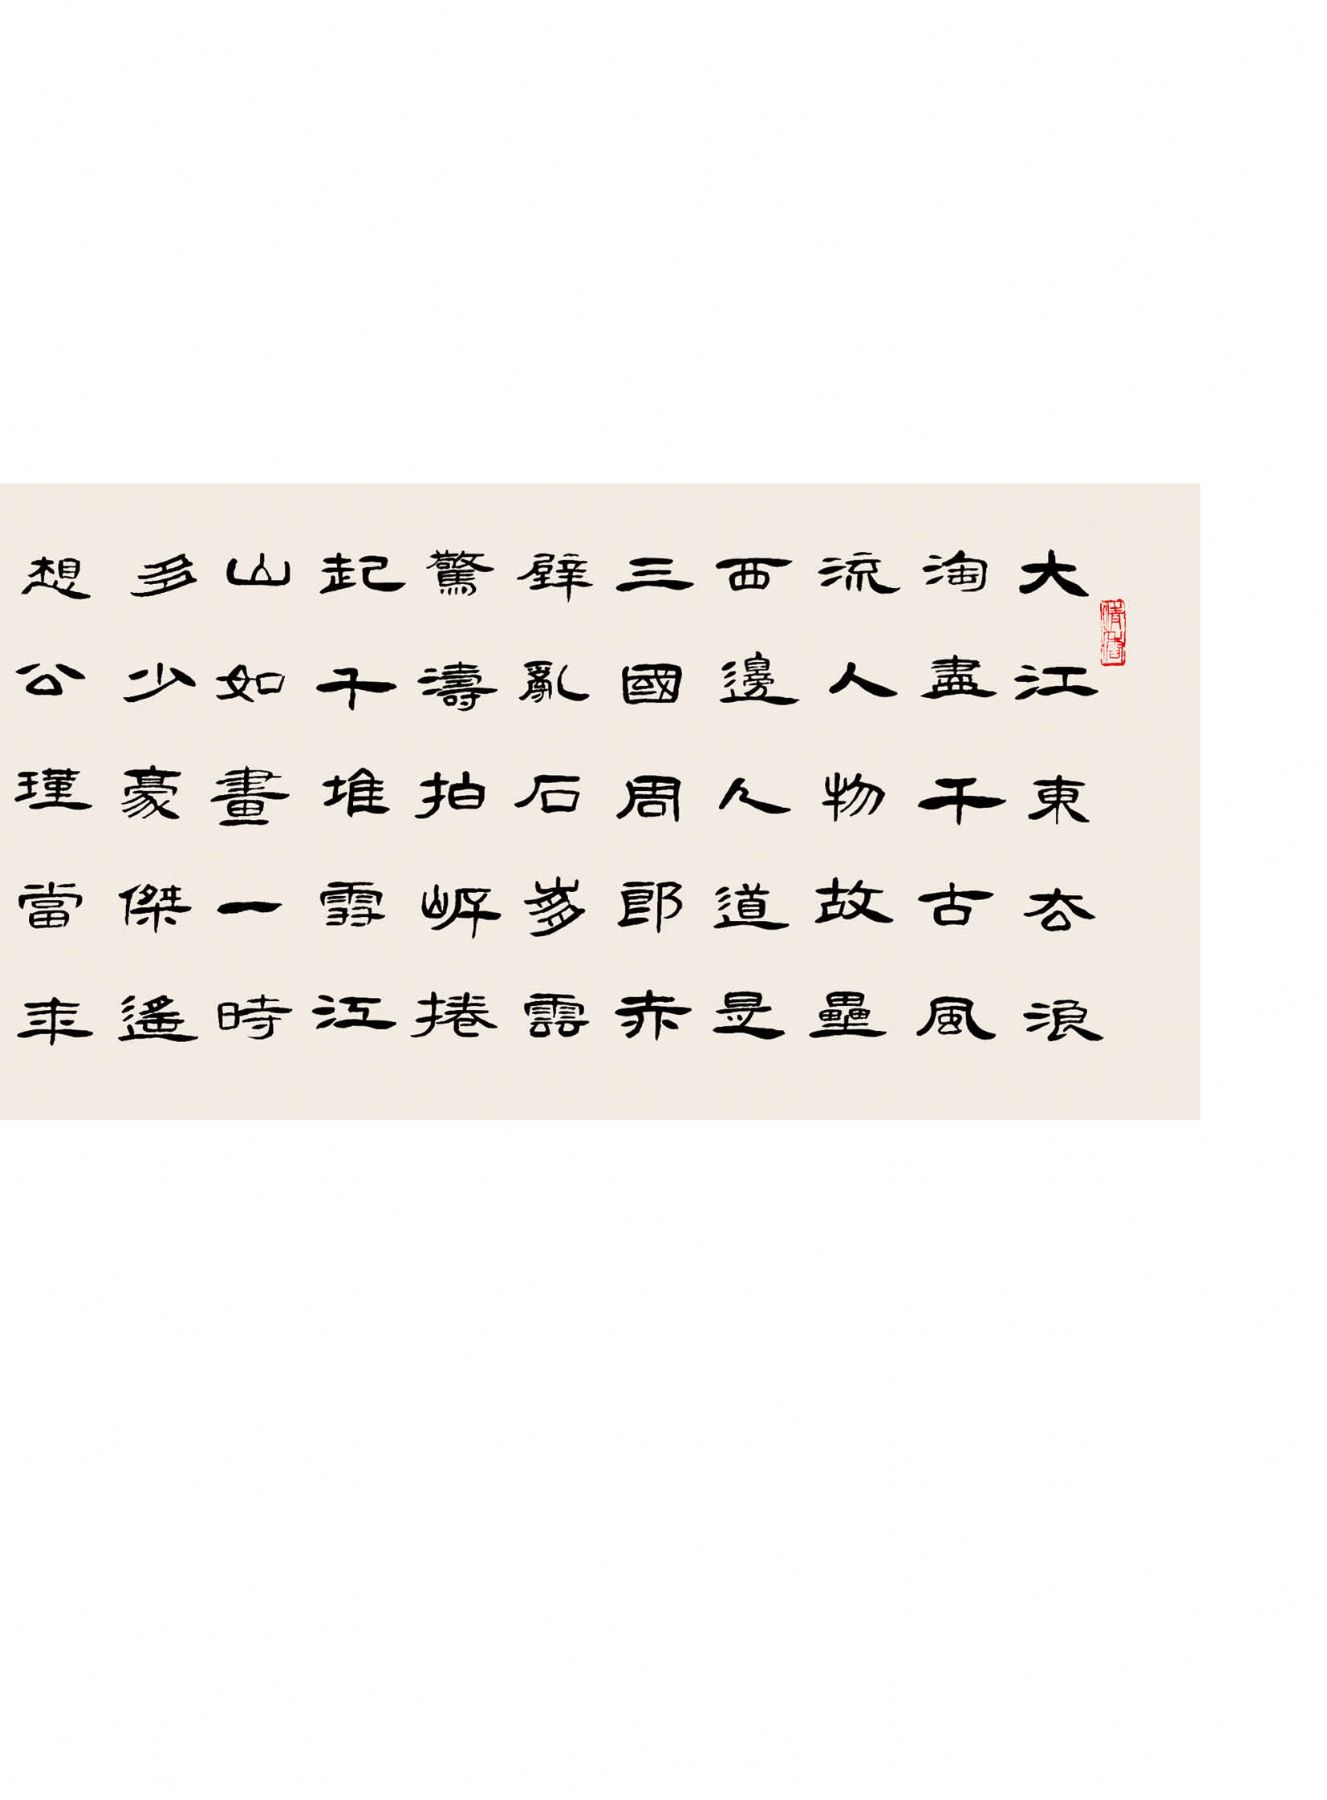 大江東去浪
淘盡千古風
流人物故壘
西邊人道是
三國周郎赤
壁亂石雲
驚濤拍岸捲
起千堆雪江
山如畫一時
多少豪傑遙
想公瑾當年